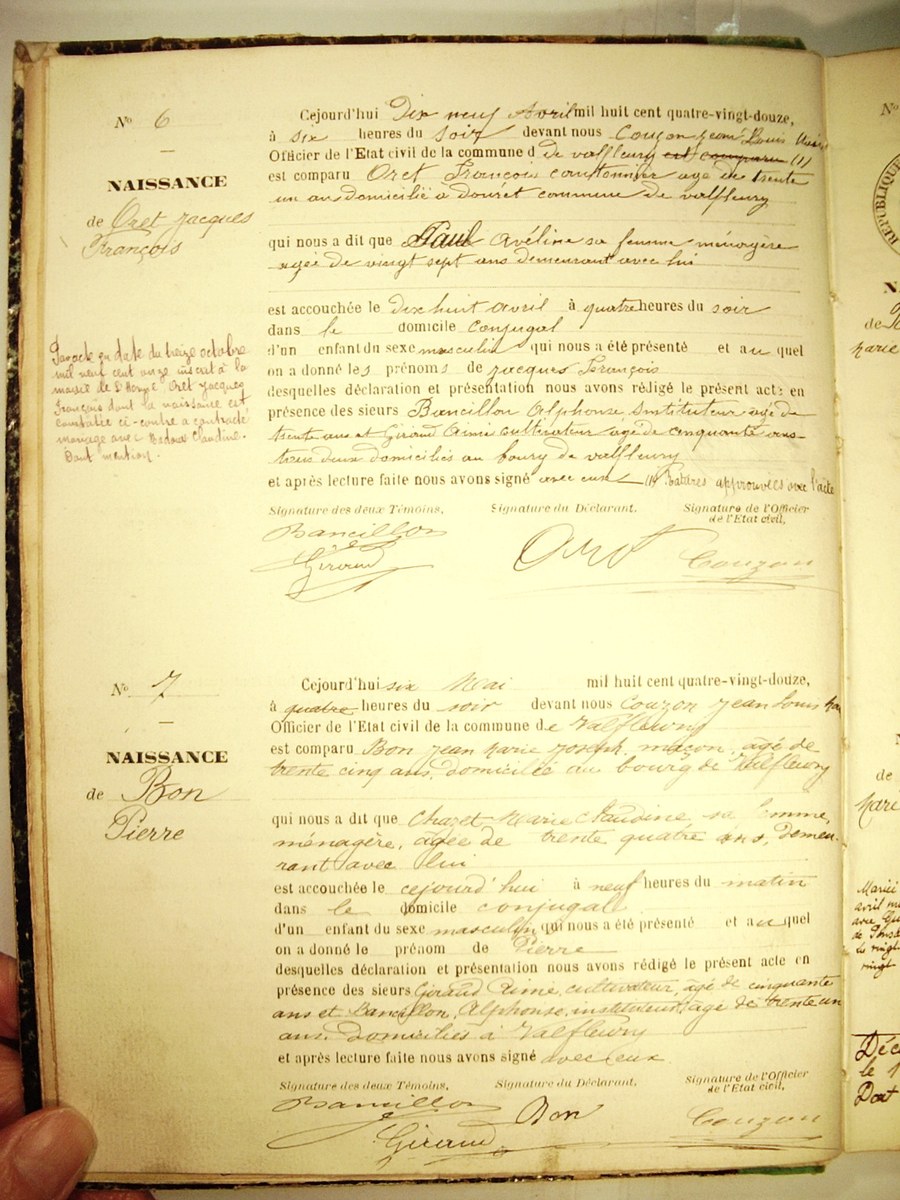 N° 6
NAISSANCE
de Oret Jacques
François
Par acte en date du treize octobre
mil neuf cent onze inscrit à la
mairie de Oret Jacques
François dont la naissance est
constatée ci-contre a contracté
mariage avec Claudine.
Dont mention.
Cejourd'hui Dix neuf Avril mil huit cent quatre-vingt-douze,
à six heures du soir devant nous Couzon Jean Louis Maire
Officier de l'Etat civil de la commune d de Valfleury est comparu (1)
est comparu Oret François cantonnier agé de trente
un ans domicilié à commune de Valfleury
qui nous a dit que Aveline sa femme ménagère
agée de vingt sept ans demeurant avec lui
est accouchée le dix huit avril à quatre heures du soir
dans le domicile conjugal
d'un enfant du sexe masculin qui nous a été présenté et au quel
on a donné les prénoms de Jacques François
desquelles déclaration et présentation nous avons rédigé le présent acte en
présence des sieurs Bancillon Alphonse Instituteur agé de
trente ans et Giraud Aimé cultivateur agé de cinquante ans
tous deux domiciliés au bourg de Valfleury
et après lecture faite nous avons signé avec eux (1) Ratures approuvées avec l'acte
Signature des deux Témoins. Signature du Déclarant. Signature de l'Officier
de l'Etat civil,
Bancillon
Giraud
Oret
Couzon
N° 7
NAISSANCE
de Bon
Pierre
Cejourd'hui six Mai mil huit cent quatre-vingt-douze,
à quatre heures du soir devant nous Couzon Jean Louis
Officier de l'Etat civil de la commune de Valfleury
est comparu Bon Jean Marie Joseph, maçon, âgé de
trente cinq ans, domicilié au bourg de Valfleury
qui nous a dit que Chazet Marie Claudine, sa femme,
ménagère, agée de trente quatre ans, demeu-
rant avec lui
est accouchée le cejourd'hui à neuf heures du matin
dans le domicile conjugal
d'un enfant du sexe masculin qui nous a été présenté et au quel
on a donné le prénom de Pierre
desquelles déclaration et présentation nous avons rédigé le présent acte en
présence des sieurs Giraud Aimé, cultivateur, âgé de cinquante
ans et Bancillon, Alphonse, instituteur, âgé de trente un
ans, domiciliés à Valfleury
et après lecture faite nous avons signé avec eux
Signature des deux Témoins. Signature du Déclarant. Signature de l'Officier
de l'Etat civil.
Bancillon
Giraud
Bon
Couzon